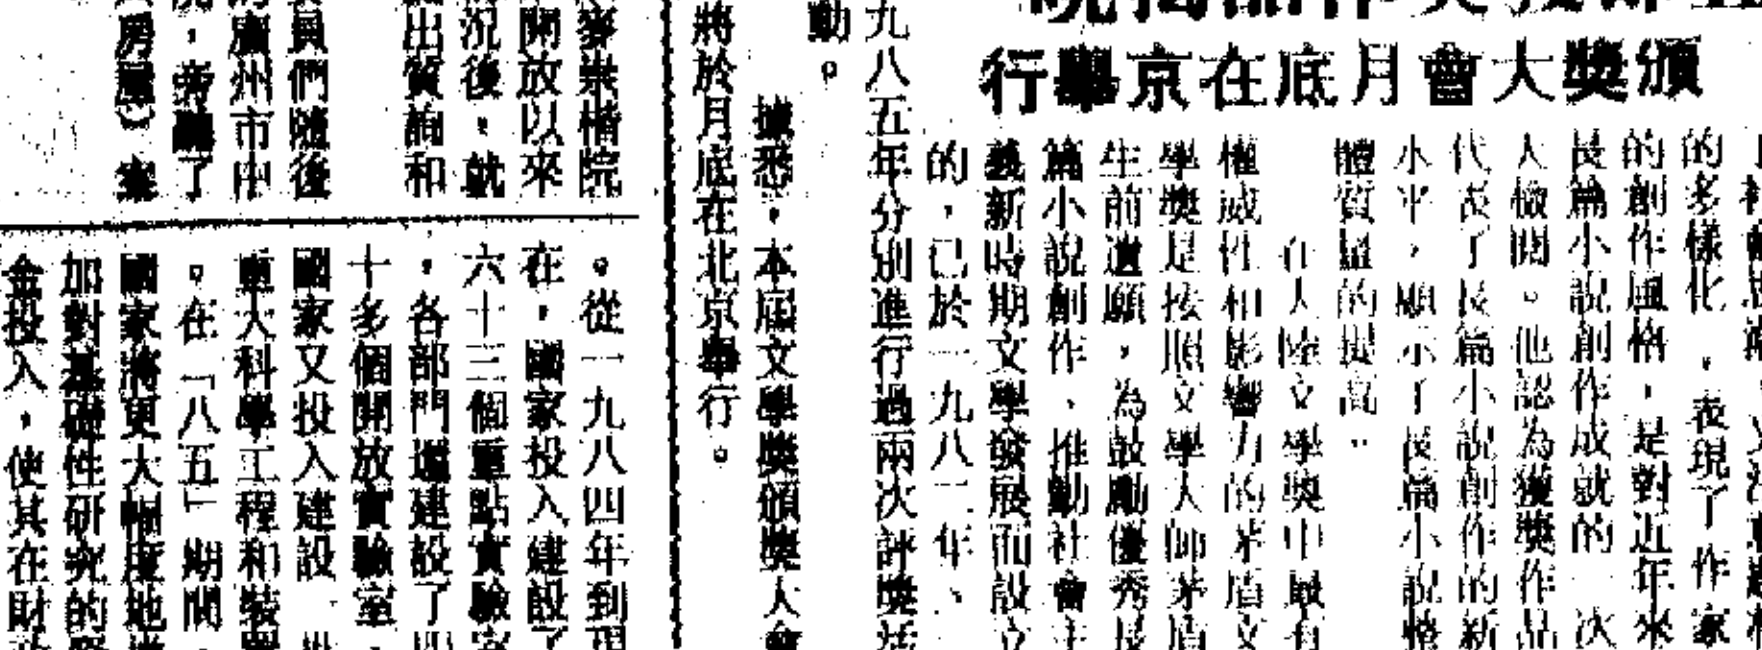 頒獎大會月底在京舉行
的多樣化，表現了作家
的創作風格，是對近年來
長篇小說創作成就的一次
人檢閱。他認為獲獎作品
代表了長篇小說創作的新
水平，顯示了長篇小說整
體質量的提高。
在大陸文學獎中最有
權威性和影響力的茅盾文
學獎是按照文學大師茅盾
生前遺願，為鼓勵優秀長
篇小說創作、推動社會主
義新時期文學發展而設立
的，已於一九八二年、
九八五年分別進行過兩次評獎活
動。
據悉，本屆文學獎頒獎大會
將於月底在北京舉行。
麥崇楷院
開放以來
況後，就
出質詢和
員們隨後
廣州市中
，旁聽了
房屋）案
。從一九八四年到現
在，國家投入建設了
六十三個重點實驗室
，各部門還建設了四
十多個開放實驗室，
國家又投入建設一批
重大科學工程和裝置
。在「八五」期間，
國家將更大幅度地增
加對基礎性研究的資
金投入，使其在財政